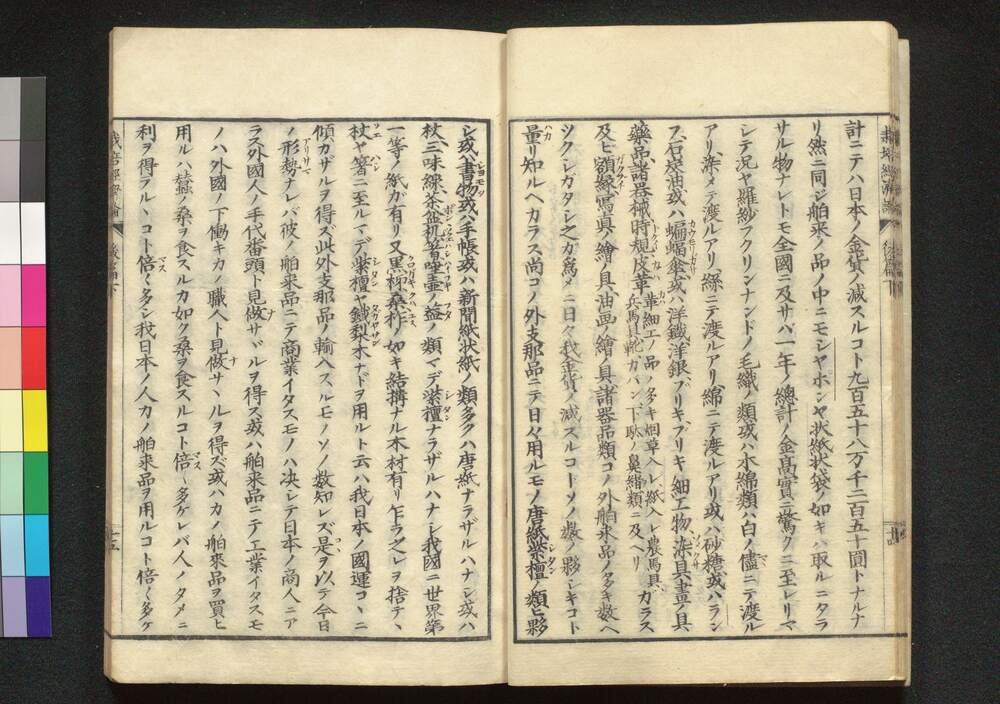 計ニテハ日本ノ金貨ノ減スルコト九百五十八万千二百五十圓トナルナ
リ然ニ同ジ舶来ノ品ノ中ニモシヤボンヤ状紙状袋ノ如キハ取ルニタラ
サル物ナレトモ全國ニ及サバ一年ノ總計ノ金高實ニ驚クニ至レリマ
シテ況ヤ羅紗フクリンナンドノ毛織ノ類或ハ木綿類ハ白ノ儘ニテ渡ル
アリ染メテ渡ルアリ絲ニテ渡ルアリ綿ニテ渡ルアリ或ハ砂糖或ハラン
プ石炭油或ハ蝙蝠傘或ハ洋鐵洋銀ブリキブリキ細工物染具畫ノ具
藥品諸器械時規皮革 革細工ノ品ノ多キ烟草入レ紙入レ農馬具 兵馬具靴ガバン下駄ノ鼻緒類ニ及ヘリ ガラス
及ヒ額縁寫真ノ繪ノ具油画ノ繪ノ具諸器品類コノ外舶来品ノ多キ数ヘ
ツクシガタシ之ガ為メニ日々我金貨ノ減スルコトソノ数ノ夥シキコト
量リ知ルヘカラス尚コノ外支那品ニテ日々用ルモノ唐紙紫檀ノ類ヒ夥
シ或ハ書物或ハ手帳或ハ新聞紙状紙ノ類多クハ唐紙ナラザルハナシ或ハ
杖三味線茶盆机箸唾壷ノ盖ノ類マデ紫檀ナラザルハナシ我國ニ世界第
一等ノ紙ガ有リ又黒柿桑柞ノ如キ結構ナル木材有リ乍ラ之レヲ捨テヽ
杖ヤ箸ニ至ルマデ紫檀ヤ鐵梨木ナドヲ用ルト云ハ我日本ノ國運コヽニ
傾カザルヲ得ズ此外支那品ノ輸入スルモノソノ数知レズ是ヲ以テ今日
ノ形勢ナレバ彼ノ舶来品ニテ商業イタスモノハ决シテ日本ノ商人ニア
ラス外國人ノ手代番頭ト見做サヾルヲ得ス或ハ舶来品ニテ工業イタスモ
ノハ外國ノ下働キカノ職人ト見做サヽルヲ得ズ或ハカノ舶來品ヲ買ヒ
用ルハ蠶ノ桑ヲ食スルカ如ク桑ヲ食スルコト倍〱多ケレバ人ノタメニ
利ヲ得ラルヽコト倍〱多シ我日本ノ人カノ舶来品ヲ用ルコト倍〱多ケ